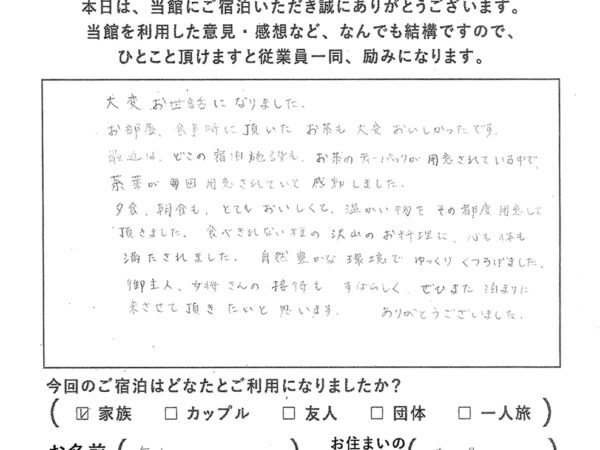 本日は、当館にご宿泊いただき誠にありがとうございます。
当館を利用した意見・感想など、なんでも結構ですので、
ひとこと頂けますと従業員一同、励みになります。
大変お世話になりました。
お部屋、食事時に頂いたお茶も大変おいしかったです。
最近は、どこの宿泊施設も、お茶のティーバックが用意されている中で、
茶葉が毎回用意されていて感動しました。
夕食、朝食も、とてもおいしくて、温かい物をその都度用意して
頂きました。食べきれない様の沢山のお料理に、心も体も
満たされました。自然豊かな環境でゆっくりくつろげました。
御主人、女将さんの接待もすばらしく、ぜひまた泊まりに
来させて頂きたいと思います。 ありがとうございました。
今回のご宿泊はどなたとご利用になりましたか？
( ☑ 家族 □ カップル □ 友人 □ 団体 □ 一人旅 )
お名前 ( お住まいの (